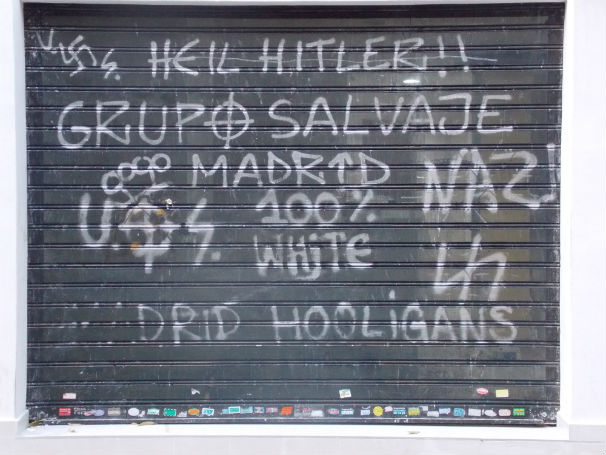 HEIL HITLER!!
GRUPO SALVAJE
MADRID
NAZI
U S.
100%
WHiTE
DRID HOOLiGANS